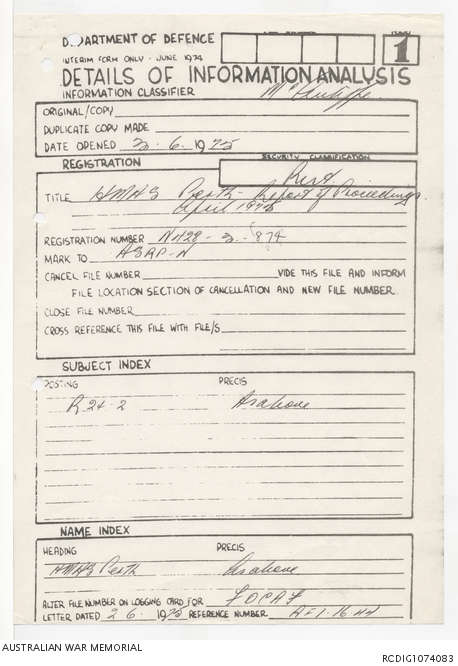 DEPARTMENT OF DEFENCE
1
INTERIM FORM ONLY - JUNE 1974
DETAILS OF INFORMATION ANALYSIS
INFORMATION CLASSIFIER
ORIGINAL/COPY
DUPLICATE COPY MADE
DATE OPENED 23.6.1975
REGISTRATION
SECURITY CLASSIFICATION
Rest
TITLE HMAS Perth - Report of Proceedings
April 1975
REGISTRATION NUMBER N1129-3-874
MARK TO ASRP-N
CANCEL FILE NUMBER VIDE THIS FILE AND INFORM
FILE LOCATION SECTION OF CANCELLATION AND NEW FILE NUMBER.
CLOSE FILE NUMBER
CROSS REFERENCE THIS FILE WITH FILE/S
SUBJECT INDEX
POSTING PRECIS
R24-2 As above
NAME INDEX
HEADING PRECIS
HMAS Perth As above
ALTER FILE NUMBER ON LOGGING CARD FOR FOCAF
LETTER DATED 2.6.1975 REFERENCE NUMBER AF1.16.44
AUSTRALIAN WAR MEMORIAL
RCDIG1074083